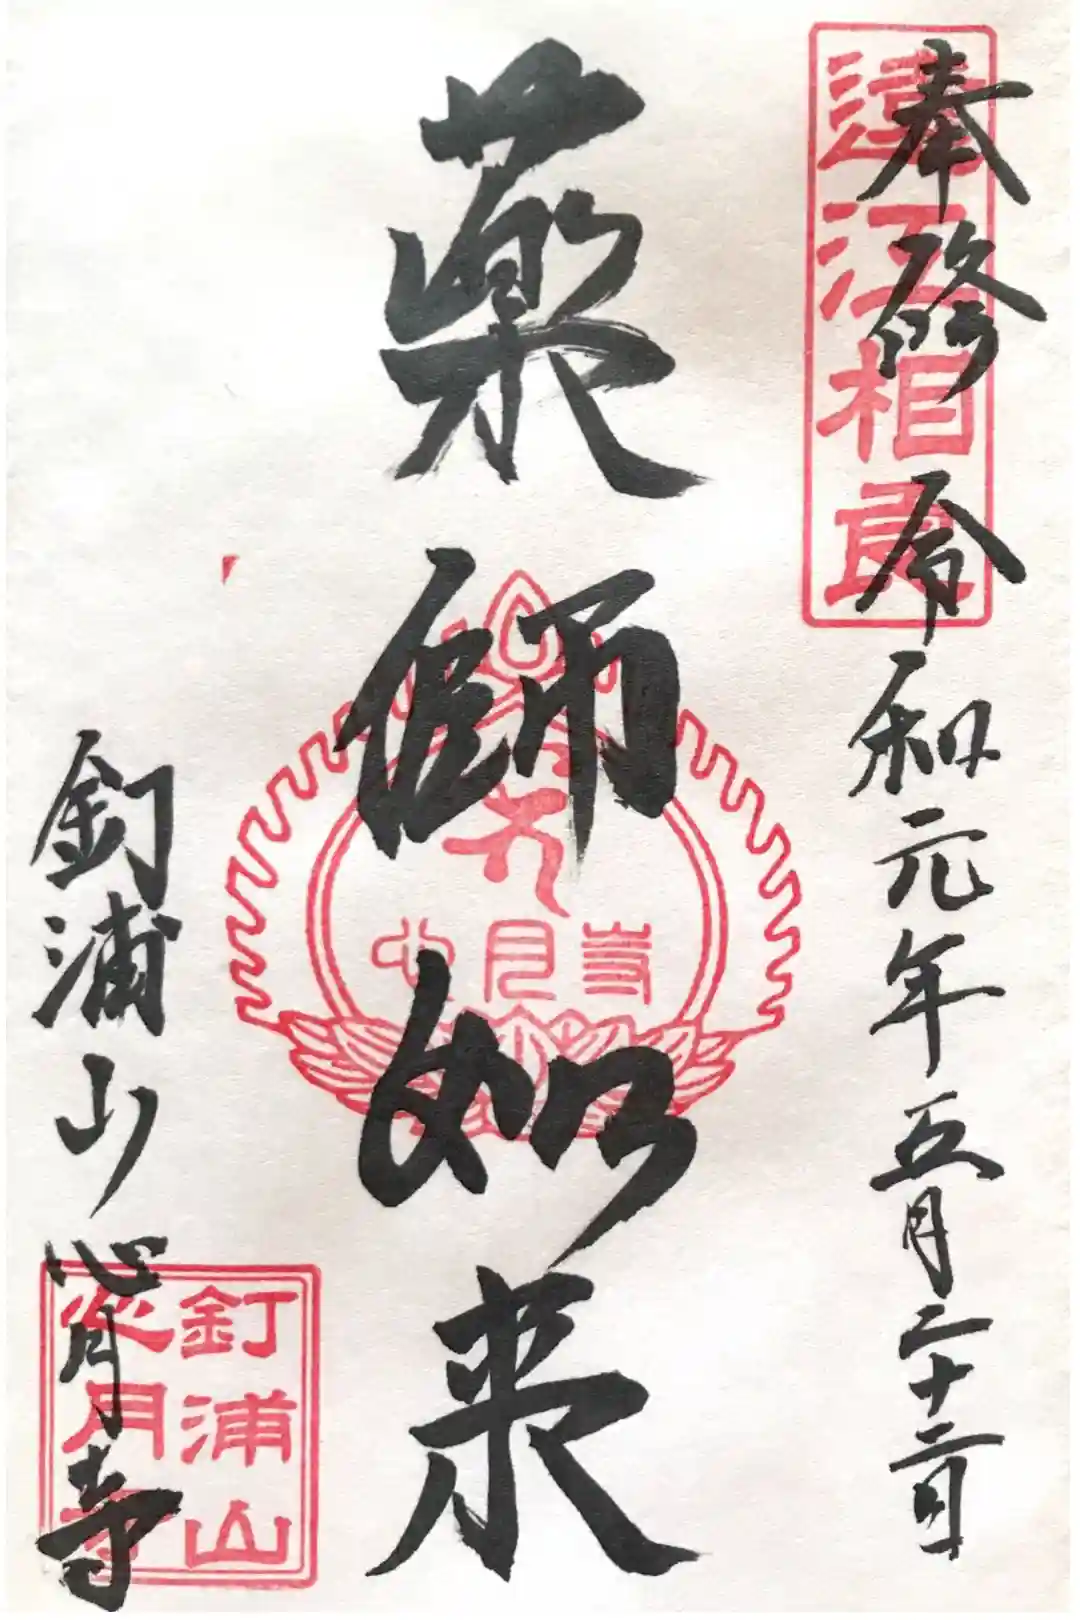 奉修 令和元年五月二十二日
遠江相良
薬師如来
心月寺
釘浦山心月寺
釘浦山
心月寺